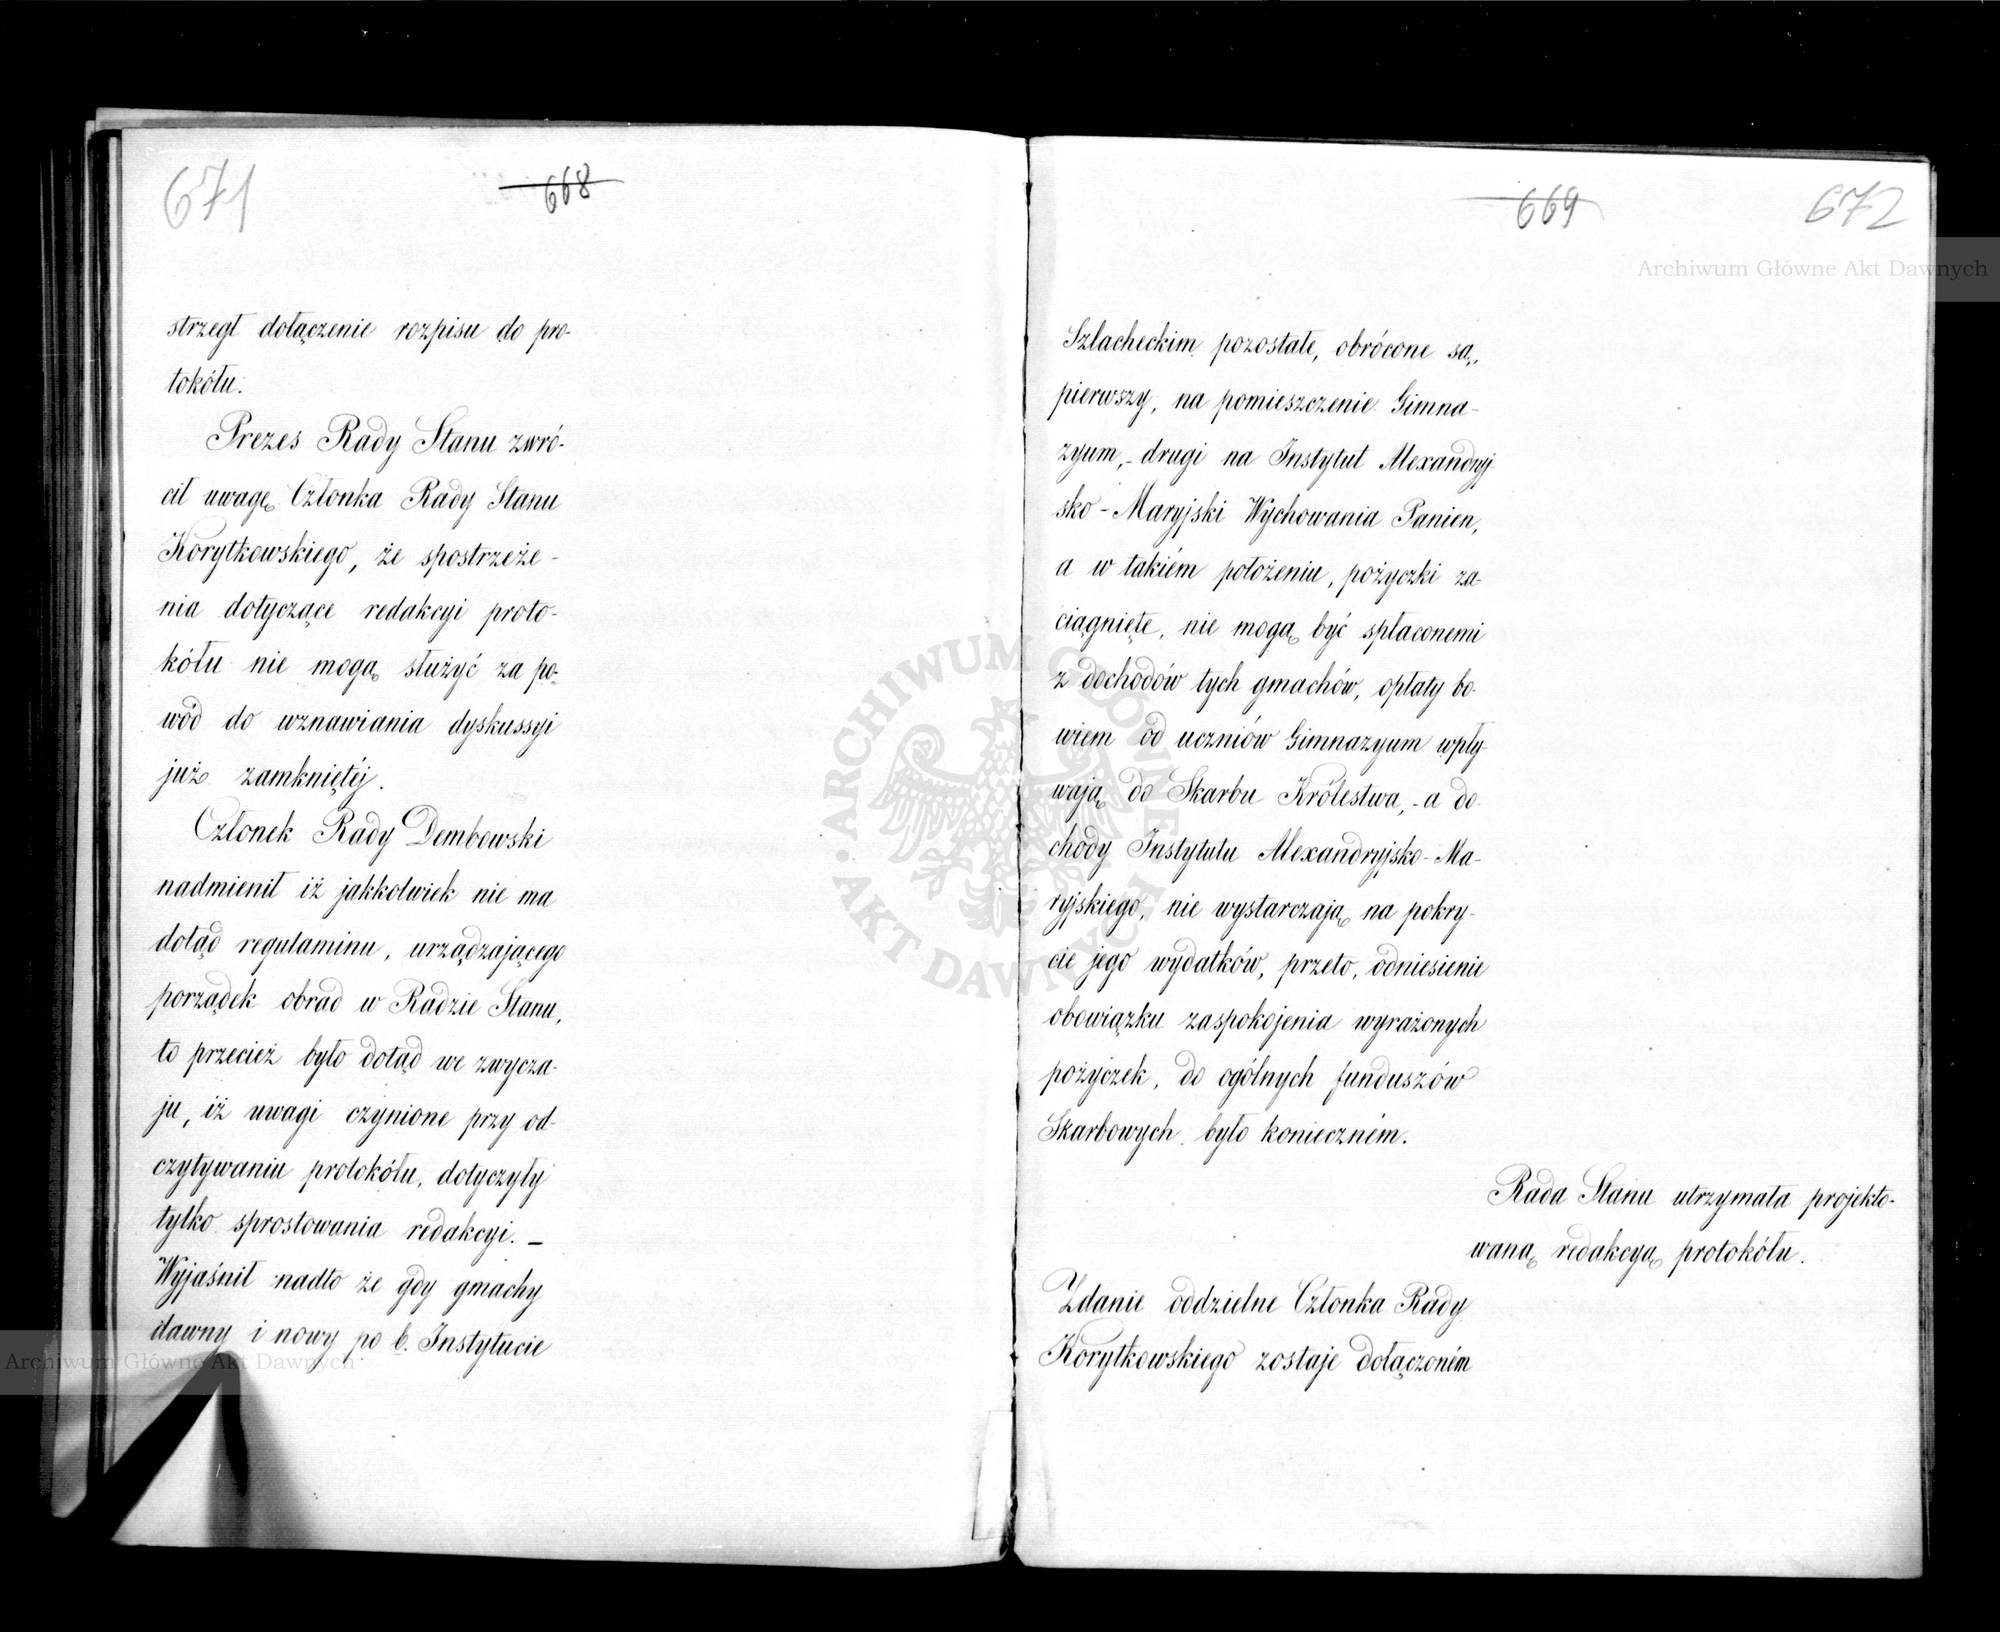 671
668
strzegł dołączenie rozpisu do pro-
tokółu.
Prezes Rady Stanu zwró-
cił uwagę Członka Rady Stanu
Korytkowskiego, że spostrzeże-
nia dotyczące redakcyi proto-
kółu nie mogą służyć za po-
wód do wznawiania dyskussyi
już zamkniętéj.
Członek Rady Dembowski
nadmienił iż jakkolwiek nie ma
dotąd regulaminu, urządzającego
porządek obrad w Radzie Stanu,
to przecież było dotąd we zwycza-
ju, iż uwagi czynione przy od-
czytywaniu protokółu, dotyczyły
tylko sprostowania redakcyi. –
Wyjaśnił nadto że gdy gmachy
dawny i nowy po b. Instytucie
669
672
Szlacheckim pozostałe, obrócone są,
pierwszy, na pomieszczenie Gimna-
zyum, - drugi na Instytut Alexandryj
sko-Maryjski Wychowania Panien,
a w takiém położeniu, pożyczki za-
ciągnięte, nie mogą być spłaconemi
z dochodów tych gmachów, opłaty bo-
wiem od uczniów Gimnazyum wpły-
wają do Skarbu Królestwa, - a do-
chody Instytutu Alexandryjsko-Ma-
ryjskiego, nie wystarczają na pokry-
cie jego wydatków, przeto, odniesienie
obowiązku zaspokojenia wyrażonych
pożyczek, do ogólnych funduszów
Skarbowych było konieczném.
Rada Stanu utrzymała projekto-
waną redakcyą protokółu.
Zdanie oddzielne Członka Rady
Korytkowskiego zostaje dołączoném
Archiwum Główne Akt Dawnych
Archiwum Główne Akt Dawnych
ARCHIWUM GŁÓWNE AKT DAWNYCH